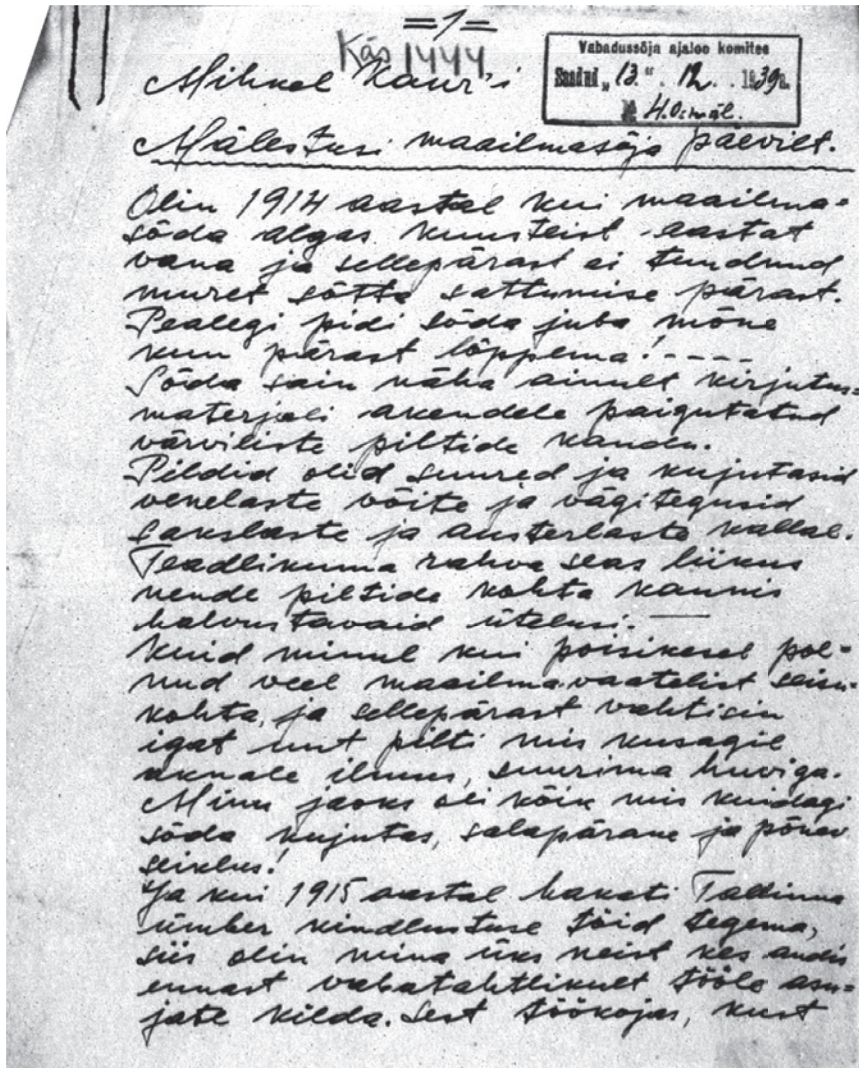 =1=
Käs 1444
Vabadussõja ajaloo komitee
Saadud „13.“ 12. 1939a.
Mihkel Kaur'i
Mälestusi maailmasõja päevilt.
Olin 1914 aastal kui maailma=
sõda algas kuusteist aastat
vana ja sellepärast ei tundnud
muret sõtta sattumise pärast.
Pealegi pidi sõda juba mõne
kuu pärast lõppema! - - - -
Sõda sain näha ainult kirjutus=
materjali akendele paigutatud
värviliste piltide kaudu.
Pildid olid suured ja kujutasid
venelaste võite ja vägitegusid
sakslaste ja austerlaste kallal.
Teadlikuma rahva seas liikus
nende piltide kohta kaunis
halvustavaid ütelusi. —
Kuid minul kui poisikesel pol=
nud veel maailmavaatelist seisu=
kohta, ja sellepärast vahtisin
igat uut pilti mis kusagil
aknale ilmus, suurima huviga.
Minu jaoks oli kõik mis kuidagi
sõda kujutas, salapärane ja põnev
seiklus!
Ja kui 1915 aastal hakati Tallinna
ümber kindlustuse töid tegema,
siis olin mina üks neist kes andis
ennast vabatahtlikult tööle asu=
jate kilda. Sest töökojas, kust